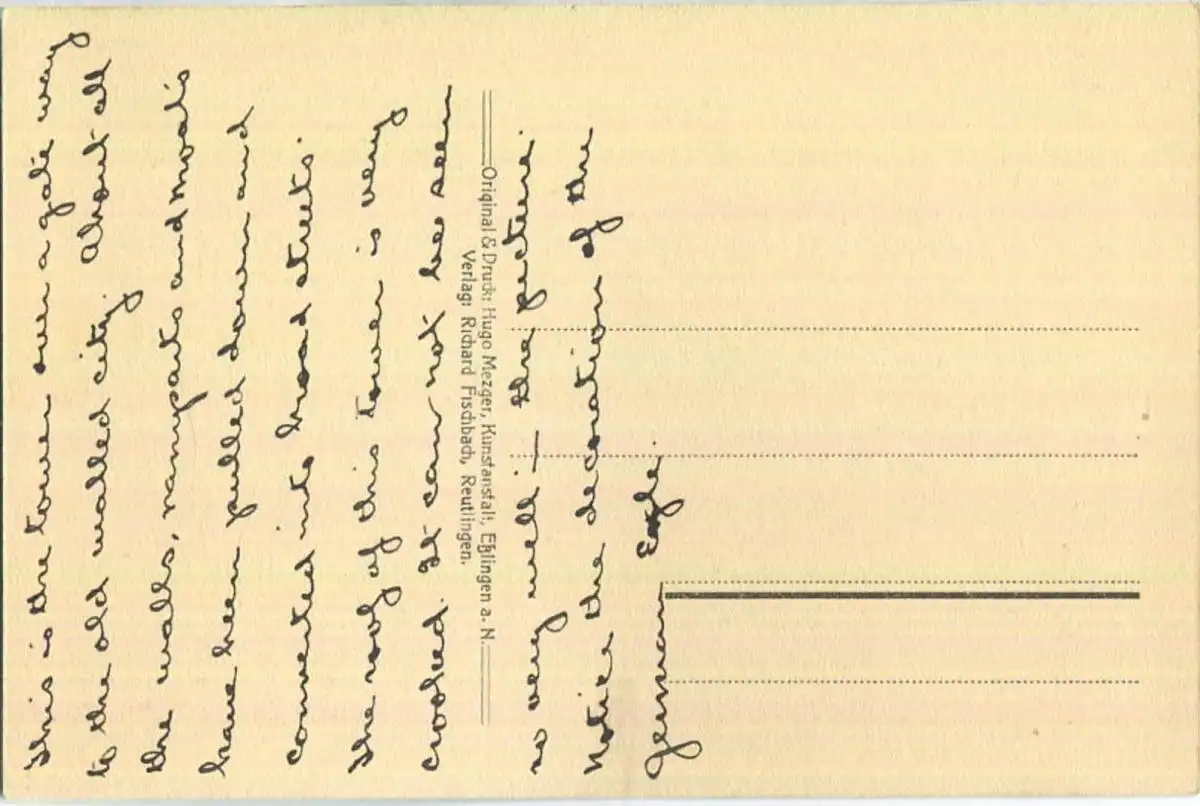 This is the tower over a gate way
to the old walled city. About all
the walls, ramparts and moats
have been pulled down and
converted into broad streets.
The roof of this tower is very
crooked. It can not be seen
so very well in the picture.
Notice the decoration of the
German Eagle.
Original & Druck: Hugo Mezger, Kunstanstalt, Eßlingen a. N.
Verlag: Richard Fischbach, Reutlingen.